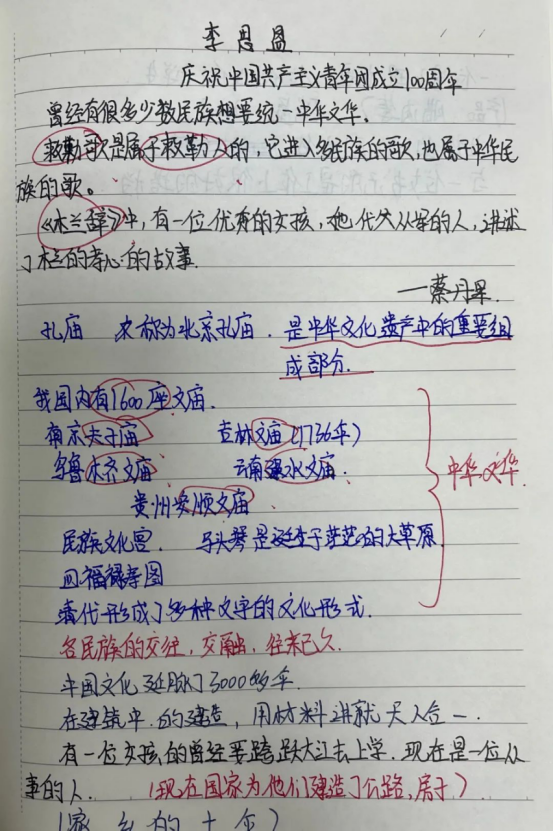 李恩盈
庆祝中国共产主义青年团成立100周年
曾经有很多少数民族想要统一中华文华。
敕勒歌是属于敕勒人的，它进入多民族的歌，也属于中华民
族的歌。
《木兰辞》中，有一位优秀的女孩，她代父从军的人，讲述
了木兰的孝心的故事.
——蔡丹果.
孔庙 又称为北京孔庙. 是中华文化遗产中的重要组
成部分.
我国内有1600座文庙.
南京夫子庙 吉林文庙(1736年)
乌鲁木齐文庙 云南建水文庙.
贵州安顺文庙
中华文华.
民族文化宫. 马头琴是诞生于茫茫的大草原
回福禄寿图
清代形成了多种文字的文化形式.
各民族的交往，交融，往来已久.
中国文化延脉了5000多年.
在建筑中.的建造，用材料讲就天人合一.
有一位女孩的曾经要跨跃大江去上学.现在是一位从
事的人. (现在国家为他们建造了公路,房子)
(家乡的十年)